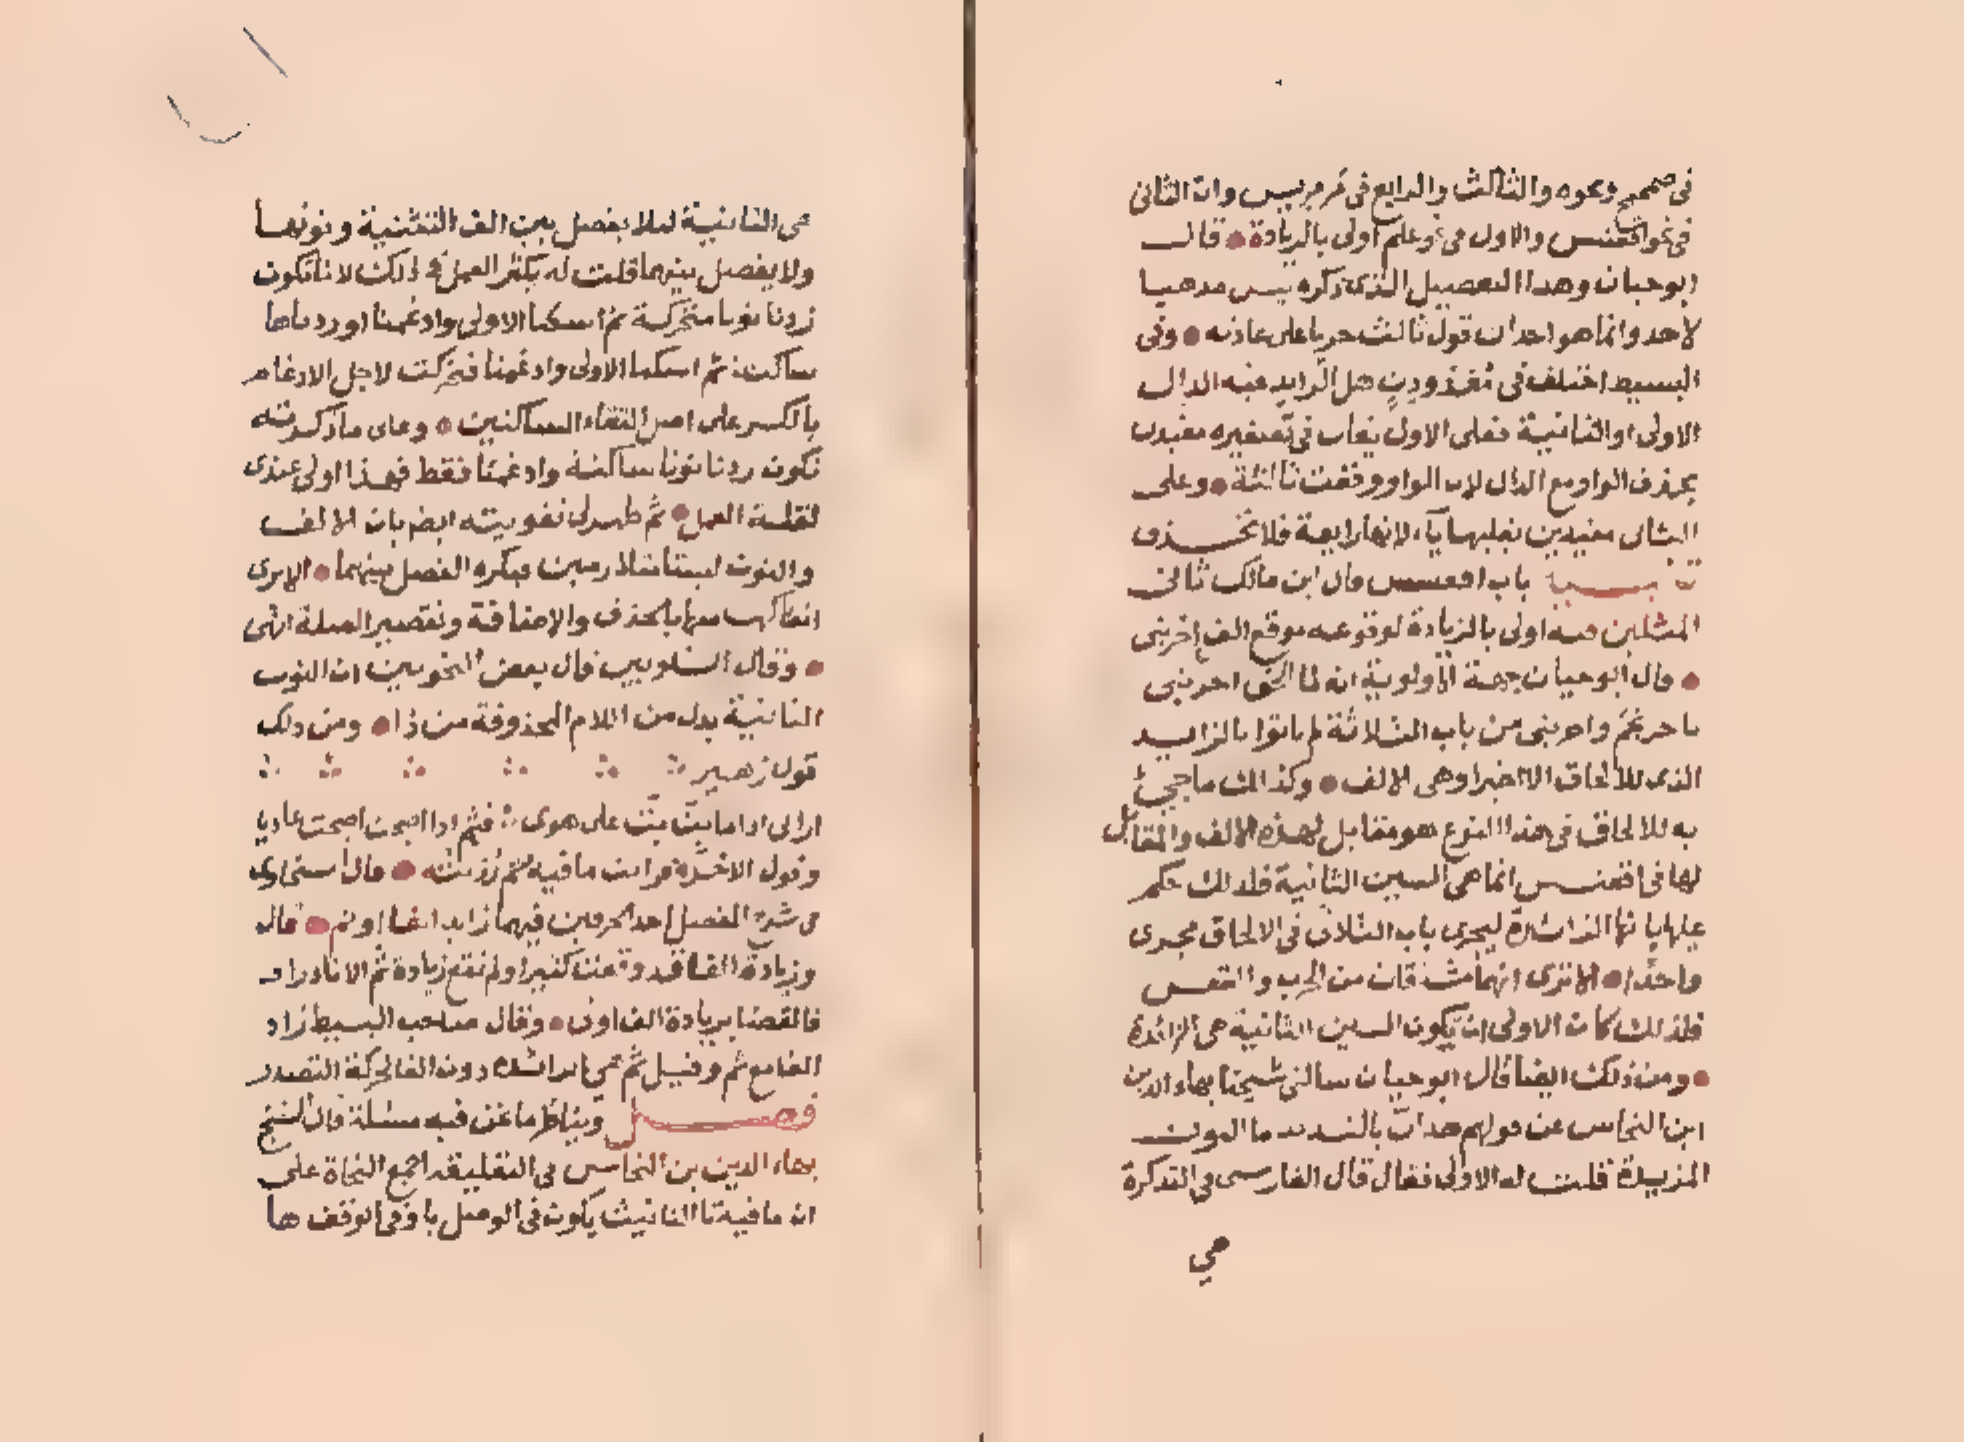 في صمحمح ونحوه والثالث والرابع في مرمريس وان الثاني
في نحو اقعنسس والاول في نحو علم اولى بالزيادة قال
ابو حيان وهذا التفصيل الذي ذكره ليس مذهبا
لاحد وانما هو احداث قول ثالث جريا على عادته وفي
البسيط اختلف في مغدودن هل الزايد فيه الدال
الاولى او الثانية فعلى الاول يقال في تصغيره مغيدن
بحذف الواو مع الدال لان الواو وقعت ثالثة وعلى
الثاني مغيدين بقلبها ياء لانها رابعة فلا تحذف
تنبيه باب اقعنسس قال ابن مالك ثاني
المثلين فيه اولى بالزيادة لوقوعه موقع الف احرنبى
قال ابو حيان جهة الاولوية انه لما الحق احرنبى
باحرنجم واحرنبى من باب الثلاثة لم ياتوا بالزايد
الذي للالحاق الا اخيرا وهي الالف وكذلك ما جيئ
به للالحاق في هذا النوع هو مقابل لهذه الالف والمقابل
لها في اقعنسس انما هي السين الثانية فلذلك حكم
عليها بانها الزائدة ليجرى باب الثلاث في الالحاق مجرى
واحدا الا ترى انهما مشتقان من الحرب والقعس
فلذلك كان الاولى ان تكون السين الثانية هي الزائدة
ومن ذلك ايضا قال ابو حيان سالني شيخنا بهاء الدين
ابن النحاس عن قولهم هذان بالتشديد ما النون
المزيدة قلت له الاولى فقال قال الفارسي في التذكرة
هي
هي الثانية ليلا يفصل بين الف التثنية ونونها
ولا يفصل بينهما قلت له يكثر العمل في ذلك لانا نكون
زدنا نونا متحركة ثم اسكنا الاولى وادغمنا او زدناها
ساكنة ثم اسكنا الاولى وادغمنا فتحركت لاجل الادغام
بالكسر على اصل التقاء الساكنين وعلى ما ذكرته
نكون زدنا نونا ساكنة وادغمنا فقط فهذا اولى عندي
لقلة العمل ثم ظهر لي تقويته ايضا بان الالف
والنون ليستا متلازمين فيكره الفصل بينهما الا ترى
انفكاكهما بالحذف والاضافة وتقصير الصلة انتهى
وقال الشلوبين قال بعض النحويين ان النون
الثانية بدل من اللام المحذوفة من ذا ومن ذلك
قول زهير
اراني اذا ما بت بت على هوى فثم اذا اصبحت اصبحت غاديا
وقول الاخر فرايت ما فيه فثم رزئته قال السخاوي
في شرح المفصل احد الحرفين فيهما زايد الفا او ثم قال
وزيادة الفا قد وقعت كثيرا ولم تقع زيادة ثم الا نادرا
فالقضا بزيادة الفا اولى وقال صاحب البسيط زاد
الفا مع ثم وقيل ثم هي الزائدة دون الفا لحركة التصدر
فصل ويناظر ما نحن فيه مسئلة قال الشيخ
بهاء الدين بن النحاس في التعليقة اجمع النحاة على
ان ما فيه تا التانيث يكون في الوصل تا وفي الوقف ها